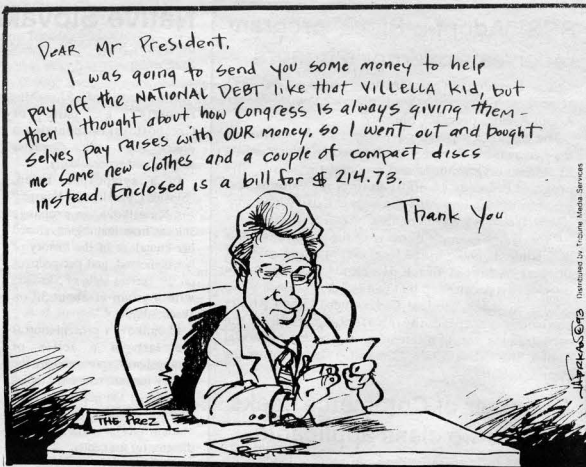 DEAR Mr President,
I was going to send you some money to help
pay off the NATIONAL DEBT like that VILLELLA kid, but
then I thought about how Congress is always giving them-
selves pay raises with OUR money. So I went out and bought
me some new clothes and a couple of compact discs
instead. Enclosed is a bill for $ 214.73.
Thank You
THE PREZ
©93
Distributed by Tribune Media Services